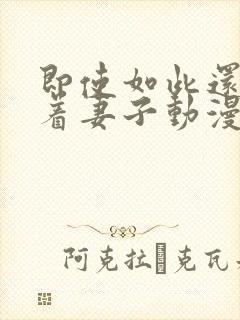 即使如此還
着妻子動漫
阿克拉 克瓦